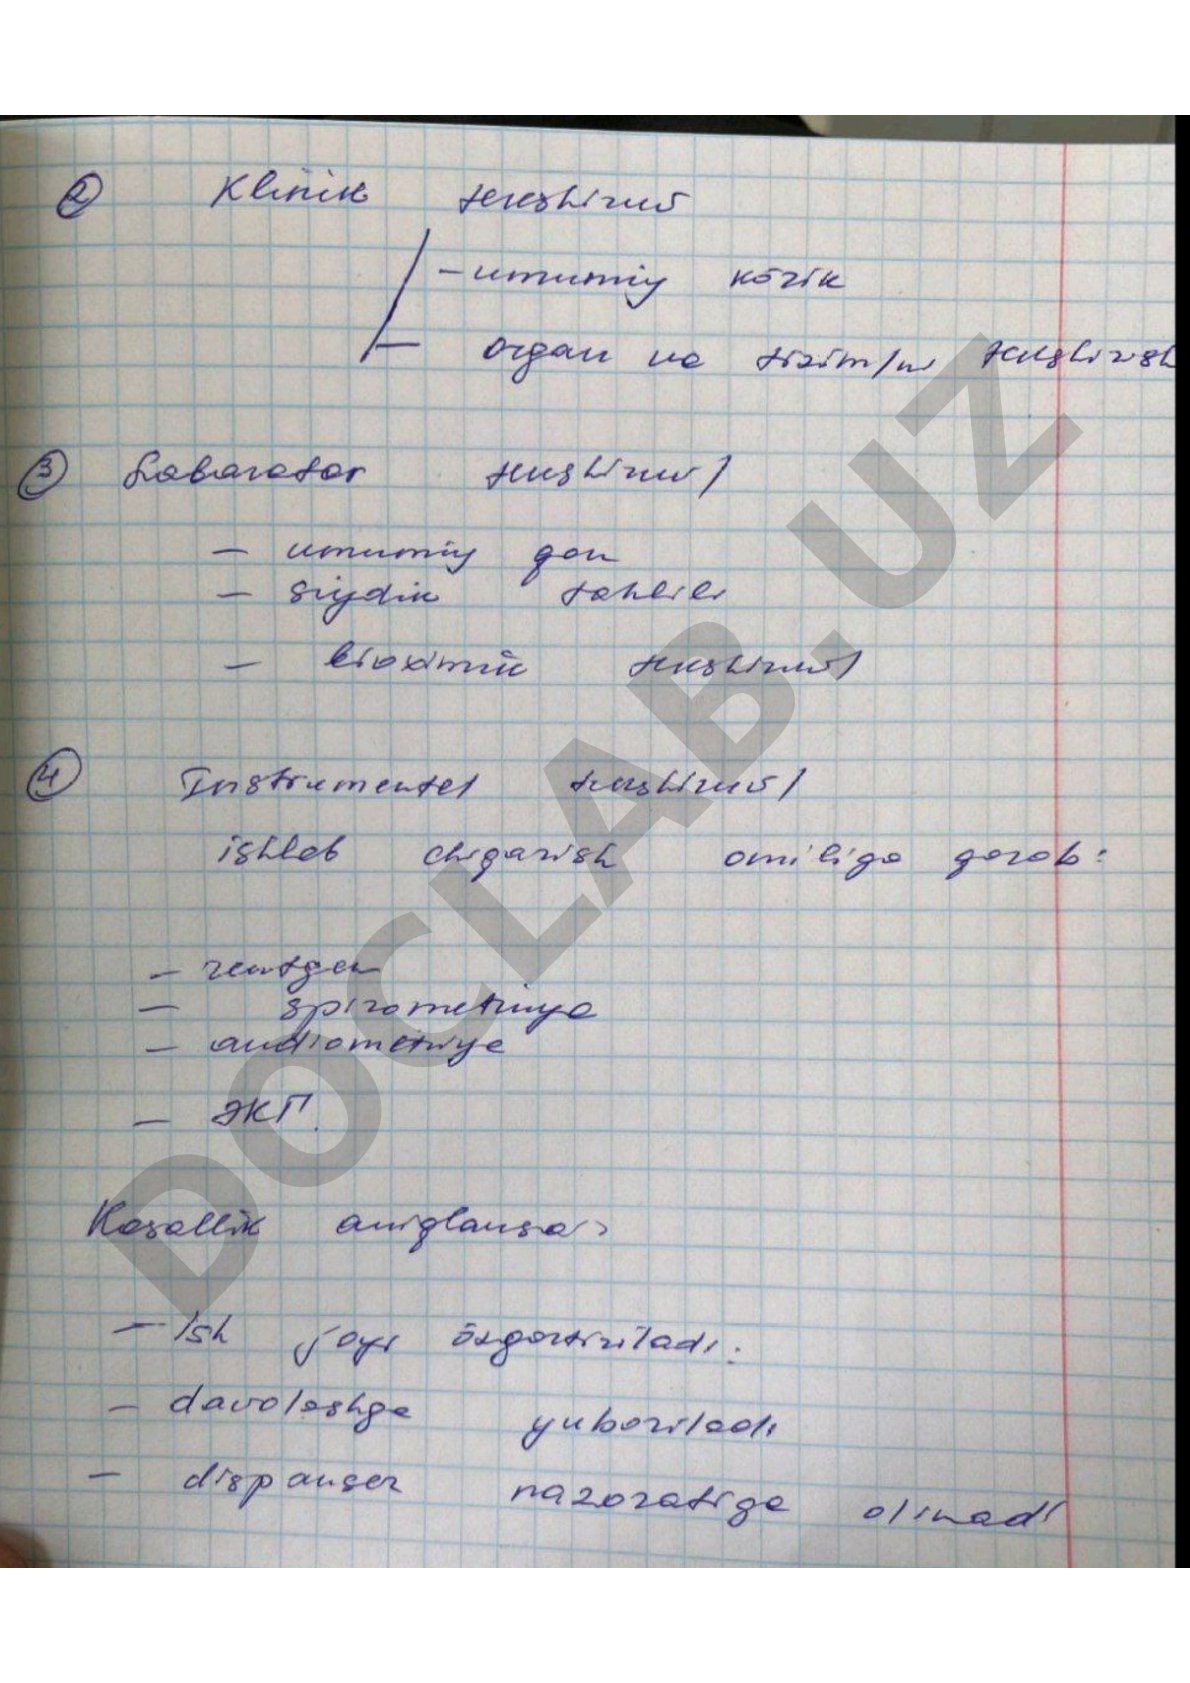 ② Klinik tekshiruv
- umumiy kōrik
- organ va tizim/ni tekshirish
③ Labarator tekshiruv/
- umumiy qon
- siydik tahlili
- bioximik tekshiruv/
④ Instrumental tekshiruv/
ishlab chiqarish omiliga qarab:
- rentgen
- spirometriya
- audiometriya
- ЭКГ.
Kasallik aniqlansa:
- Ish joyi ōzgartiriladi.
- davolashga yuboriladi
- dispanser nazoratiga olinadi
DOCLAB.UZ